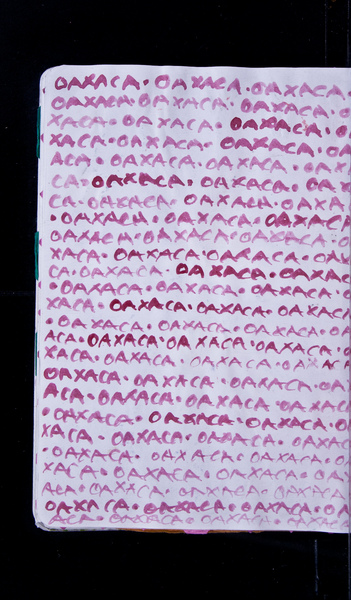 OAXACA · OAXACA · OAXACA
OAXACA · OAXACA · OAXACA ·
XACA · OAXACA · OAXACA · O
XACA · OAXACA · OAXACA · OA
ACA · OAXACA · OAXACA · OAX
CA · OAXACA · OAXACA · OAX
CA · OAXACA · OAXACA · OAXA
· OAXACA · OAXACA · OAXACA
OAXACA · OAXACA · OAXACA ·
XACA · OAXACA · OAXACA · OAX
CA · OAXACA · OAXACA · OAXAC
· OAXACA · OAXACA · OAXACA ·
XACA · OAXACA · OAXACA · OAXA
· OAXACA · OAXACA · OAXACA ·
ACA · OAXACA · OAXACA · OAXACA ·
XACA · OAXACA · OAXACA · OAXACA
OAXACA · OAXACA · OAXACA · OA
ACA · OAXACA · OAXACA · OAXAC
· OAXACA · OAXACA · OAXACA · O
XACA · OAXACA · OAXACA · OAXAC
· OAXACA · OAXACA · OAXACA · O
XACA · OAXACA · OAXACA · OAX
ACA · OAXACA · OAXACA · OAXACA
OAXACA · OAXACA · OAXACA · OA
ACA · OAXACA · OAXACA · OAXACA